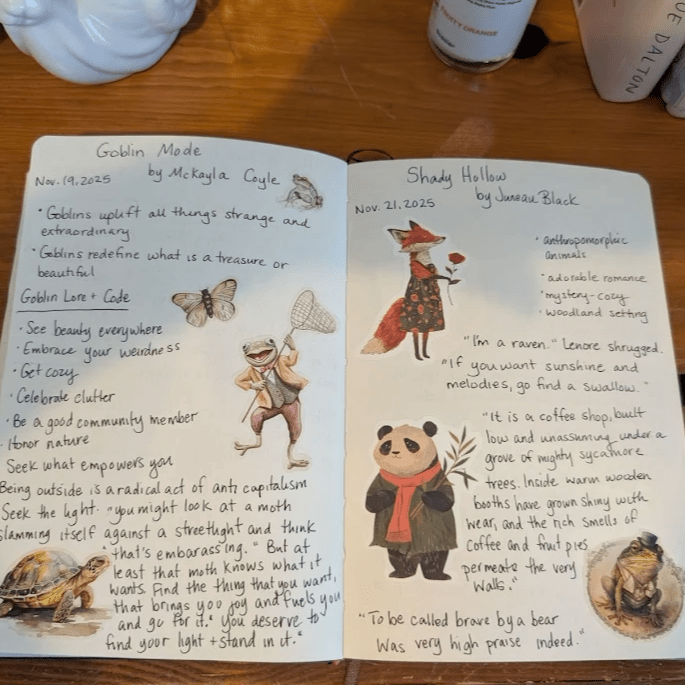 Goblin Mode
by McKayla Coyle
Nov. 19, 2025
• Goblins uplift all things strange and
extraordinary
• Goblins redefine what is a treasure or
beautiful
Goblin Lore + Code
• See beauty everywhere
• Embrace your weirdness
• Get cozy
• Celebrate clutter
• Be a good community member
• Honor nature
Seek what empowers you
Being outside is a radical act of anti capitalism
Seek the light. "you might look at a moth
slamming itself against a streetlight and think
"that's embarassing." But at
least that moth knows what it
wants. Find the thing that you want,
that brings you joy and fuels you
and go for it." you deserve to
find your light + stand in it."
Shady Hollow
by Juneau Black
Nov. 21, 2025
• anthropomorphic
animals
• adorable romance
• mystery-cozy
• woodland setting
"I'm a raven." Lenore shrugged.
"If you want sunshine and
melodies, go find a swallow."
"It is a coffee shop, built
low and unassuming under a
grove of mighty sycamore
trees. Inside warm wooden
booths have grown shiny with
wear, and the rich smells of
coffee and fruit pies
permeate the very
walls."
"To be called brave by a bear
was very high praise indeed."
ORANGE
DALTON